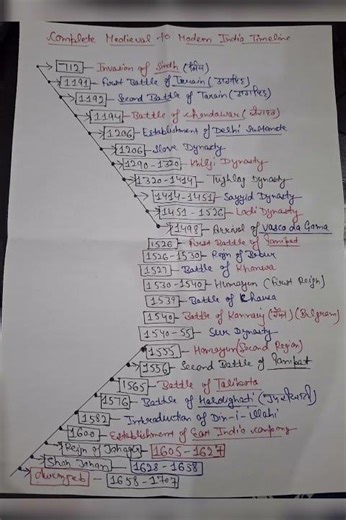 Complete Medieval to Modern India Timeline
712 - Invasion of Sindh (सिंध)
1191 - First Battle of Tarain (तराईन)
1192 - Second Battle of Tarain (तराईन)
1194 - Battle of Chandawar
1206 - Establishment of Delhi Sultanate
1206 - Slave Dynasty
1290-1320 - Khilji Dynasty
1320-1414 - Tughlaq Dynasty
1414-1451 - Sayyid Dynasty
1451-1526 - Lodi Dynasty
1498 - Arrival of Vasco da Gama
1526 - First Battle of Panipat
1526-1530 - Reign of Babur
1527 - Battle of Khanwa
1530-1540 - Humayun (First Reign)
1539 - Battle of Chausa
1540 - Battle of Kannauj (Bilgram)
1540-55 - Sur Dynasty
1555 - Humayun (Second Region)
1556 - Second Battle of Panipat
1565 - Battle of Talikota
1576 - Battle of Haldighati
1582 - Introduction of Din-i-Ilahi
1600 - Establishment of East India Company
Reign of Jahangir 1605-1627
Shah Jahan - 1628-1658
Aurangzeb - 1658-1707